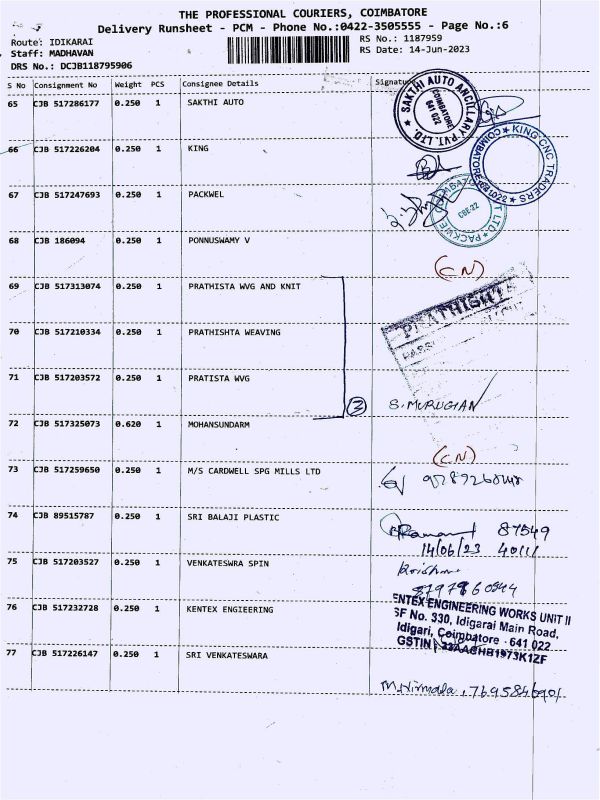 THE PROFESSIONAL COURIERS, COIMBATORE
Delivery Runsheet - PCM - Phone No.:0422-3505555 - Page No.:6
Route: IDIKARAI
RS No.: 1187959
Staff: MADHAVAN
RS Date: 14-Jun-2023
DRS No.: DCJB118795906
S No Consignment No Weight PCS Consignee Details Signature
65 CJB 517286177 0.250 1 SAKTHI AUTO
SAKTHI AUTO ANCILLARY PVT. LTD.
COIMBATORE
641 022
66 CJB 517226204 0.250 1 KING
KING CNC TRADERS
COIMBATORE
67 CJB 517247693 0.250 1 PACKWEL
CBE-22
68 CJB 186094 0.250 1 PONNUSWAMY V
(CN)
69 CJB 517313074 0.250 1 PRATHISTA WVG AND KNIT
PRATHISHTA
70 CJB 517210334 0.250 1 PRATHISHTA WEAVING
71 CJB 517203572 0.250 1 PRATISTA WVG
3 S. MURUGIAN
72 CJB 517325073 0.620 1 MOHANSUNDARM
(CN)
73 CJB 517259650 0.250 1 M/S CARDWELL SPG MILLS LTD
74 CJB 89515787 0.250 1 SRI BALAJI PLASTIC
87549
14/06/23
75 CJB 517203527 0.250 1 VENKATESWRA SPIN
76 CJB 517232728 0.250 1 KENTEX ENGIEERING
ENTEX ENGINEERING WORKS UNIT II
SF No. 330, Idigarai Main Road,
Idigari, Coimbatore - 641 022
GSTIN : 33AACHB1973K1ZF
77 CJB 517226147 0.250 1 SRI VENKATESWARA
M. Nirmala